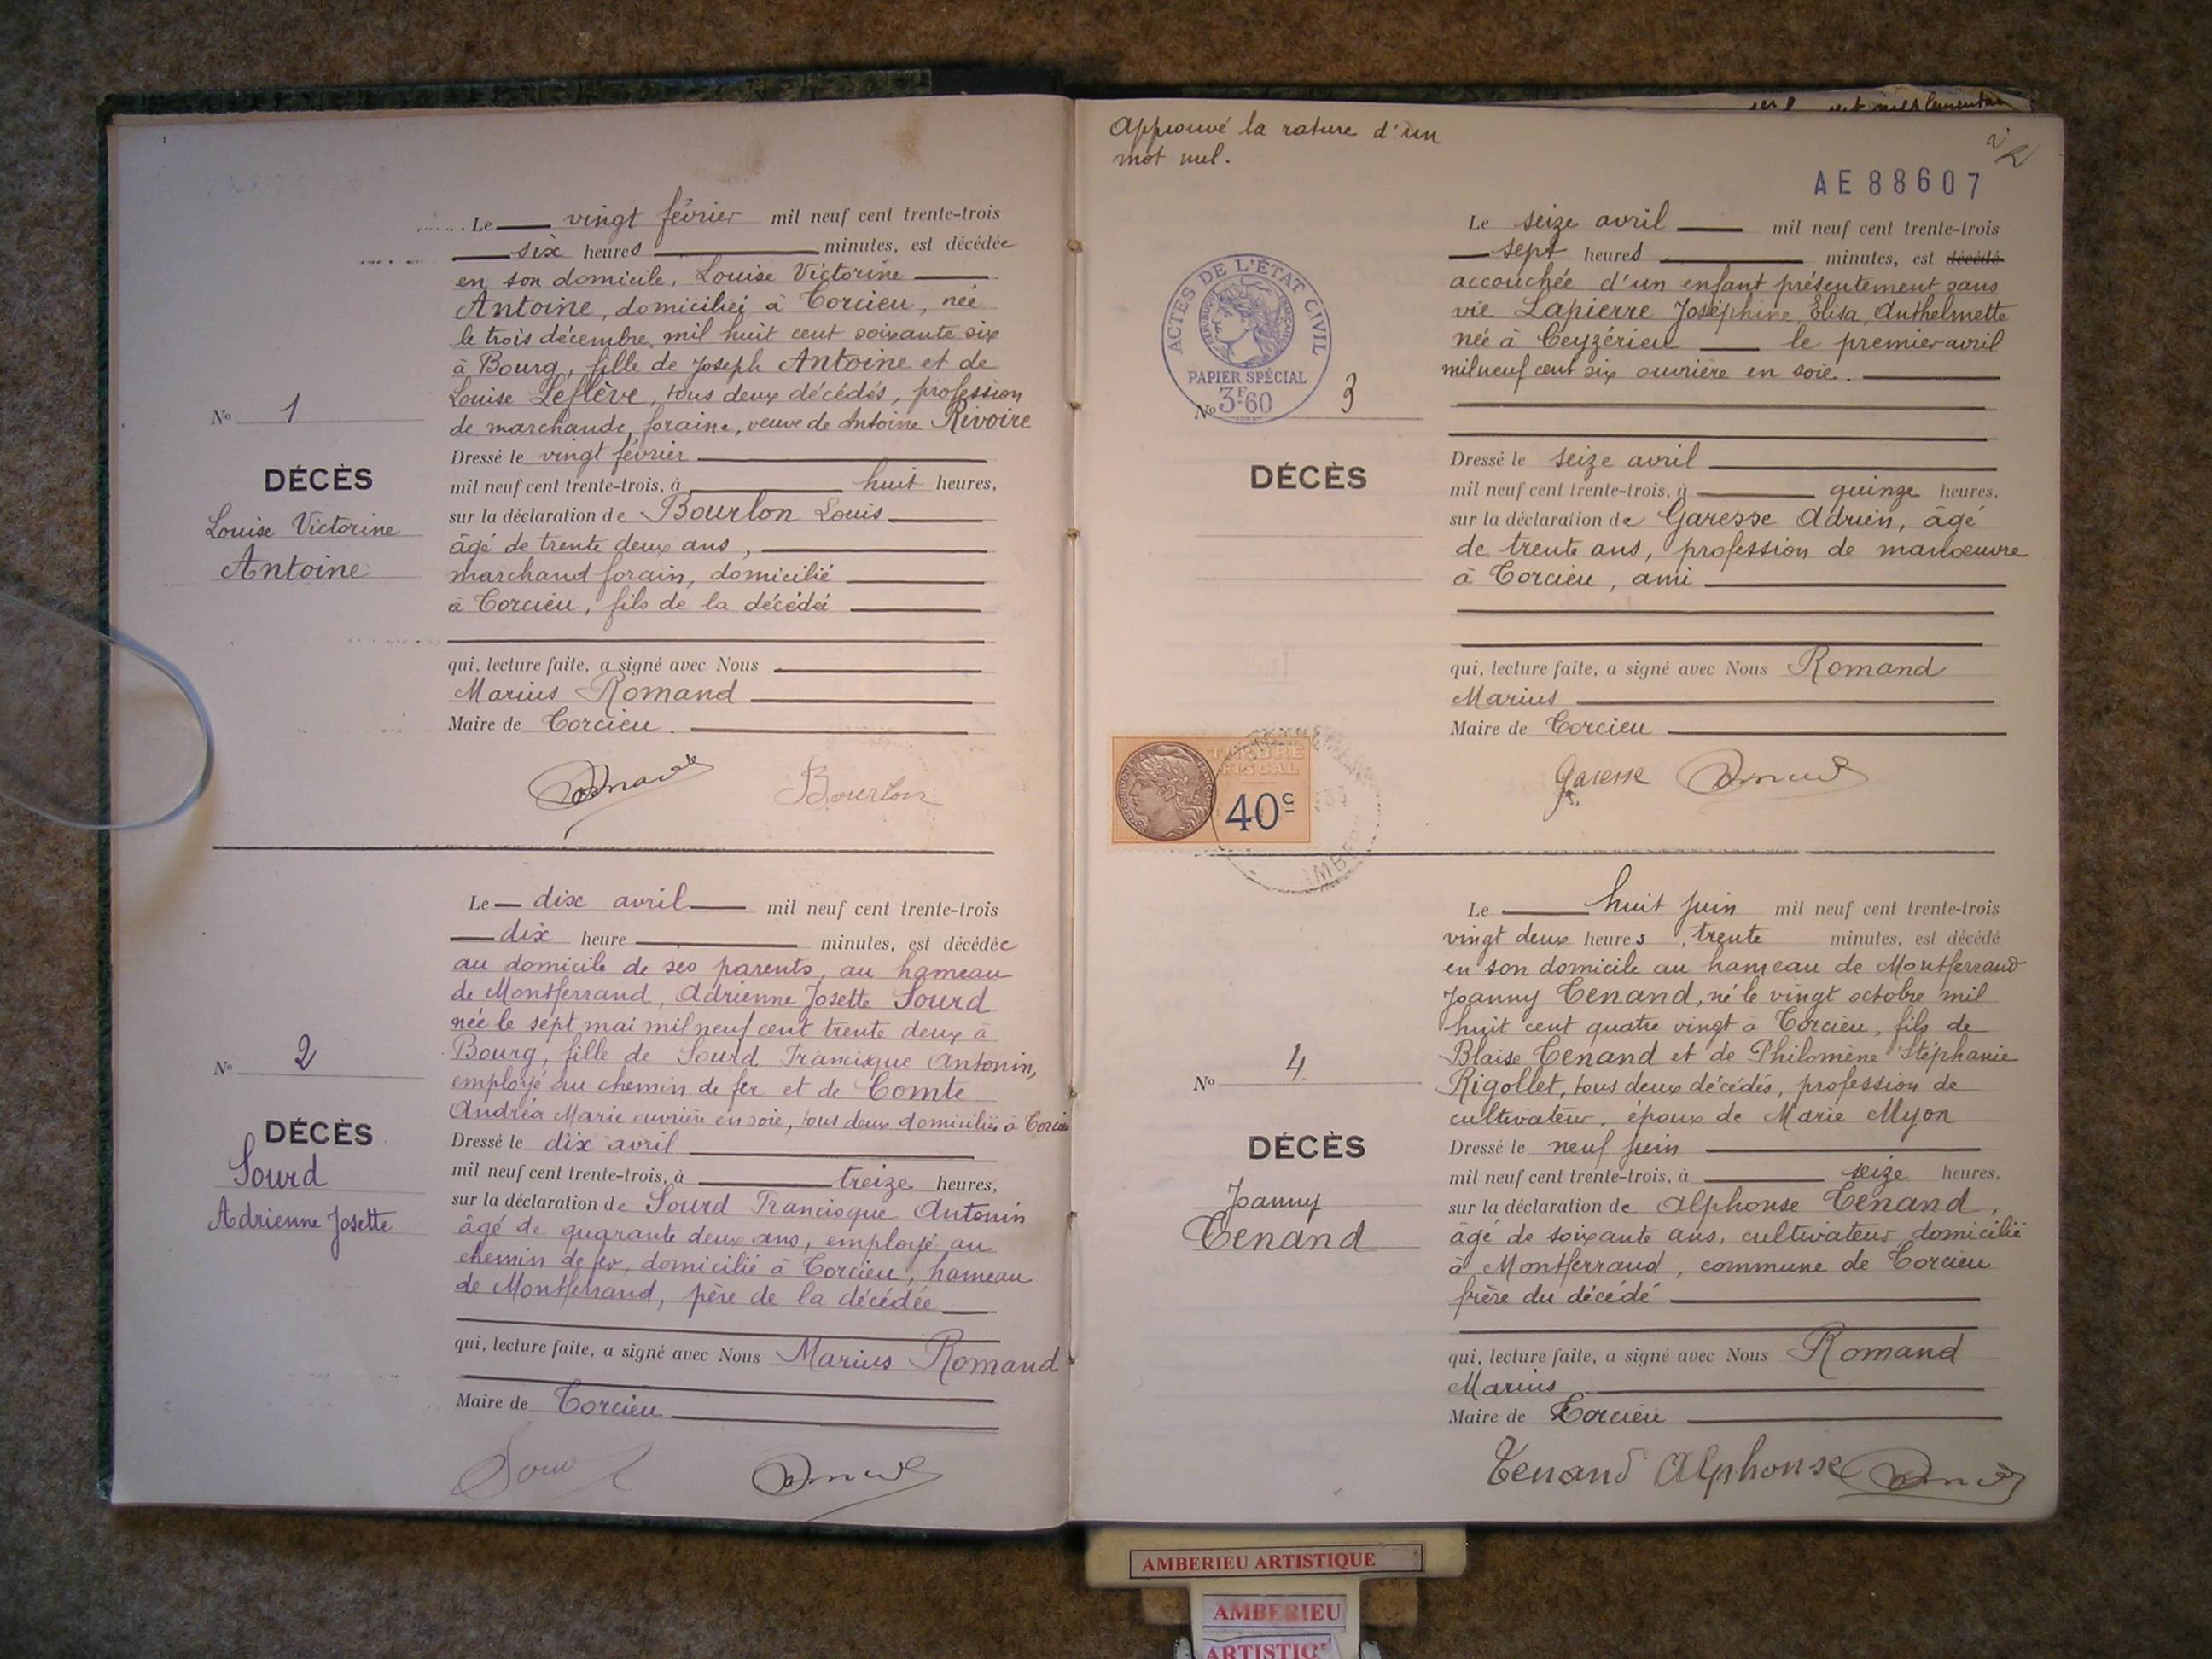 Le vingt février mil neuf cent trente-trois
six heures minutes, est décédée
en son domicile, Louise Victorine
Antoine, domiciliée à Torcieu, née
le trois décembre mil huit cent soixante six
à Bourg, fille de Joseph Antoine et de
Louise Leflève, tous deux décédés, profession
de marchande foraine, veuve de Antoine Rivoire
Nº 1
DÉCÈS
Louise Victorine
Antoine
Dressé le vingt février
mil neuf cent trente-trois, à huit heures,
sur la déclaration de Bourlon Louis
âgé de trente deux ans,
marchand forain, domicilié
à Torcieu, fils de la décédée
qui, lecture faite, a signé avec Nous
Marius Romand
Maire de Torcieu.
Bourlon
Le dix avril mil neuf cent trente-trois
dix heure minutes, est décédée
au domicile de ses parents, au hameau
de Montferrand, Adrienne Josette Sourd
née le sept mai mil neuf cent trente deux à
Bourg, fille de Sourd Francisque Antonin,
employé au chemin de fer et de Comte
Andréa Marie ouvrière en soie, tous deux domiciliés à Torcieu
Nº 2
DÉCÈS
Sourd
Adrienne Josette
Dressé le dix avril
mil neuf cent trente-trois, à treize heures,
sur la déclaration de Sourd Francisque Antonin
âgé de quarante deux ans, employé au
chemin de fer, domicilié à Torcieu, hameau
de Montferrand, père de la décédée
qui, lecture faite, a signé avec Nous Marius Romand
Maire de Torcieu
Approuvé la rature d'un
mot nul.
2
AE 88607
Le seize avril mil neuf cent trente-trois
sept heures minutes, est décédé
accouchée d'un enfant présentement sans
vie Lapierre Joséphine, Élisa, Anthelmette
née à Ceyzérieu le premier avril
mil neuf cent six ouvrière en soie.
ACTES DE L'ÉTAT CIVIL
PAPIER SPÉCIAL
3F60
Nº 3
DÉCÈS
Dressé le seize avril
mil neuf cent trente-trois, à quinze heures,
sur la déclaration de Garesse Adrien, âgé
de trente ans, profession de manœuvre
à Torcieu, ami
qui, lecture faite, a signé avec Nous Romand
Marius
Maire de Torcieu
Garesse
TIMBRE
FISCAL
40c
Le huit juin mil neuf cent trente-trois
vingt deux heures, trente minutes, est décédé
en son domicile au hameau de Montferrand
Joanny Tenand, né le vingt octobre mil
huit cent quatre vingt à Torcieu, fils de
Blaise Tenand et de Philomène Stéphanie
Rigollet, tous deux décédés, profession de
cultivateur, époux de Marie Myon
Nº 4
DÉCÈS
Joanny
Tenand
Dressé le neuf juin
mil neuf cent trente-trois, à seize heures,
sur la déclaration de Alphonse Tenand,
âgé de soixante ans, cultivateur domicilié
à Montferrand, commune de Torcieu
frère du décédé
qui, lecture faite, a signé avec Nous Romand
Marius
Maire de Torcieu
Tenand Alphonse
AMBERIEU ARTISTIQUE
AMBERIEU
ARTISTIQ